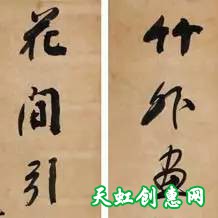 竹外画
花间引
天虹创意网